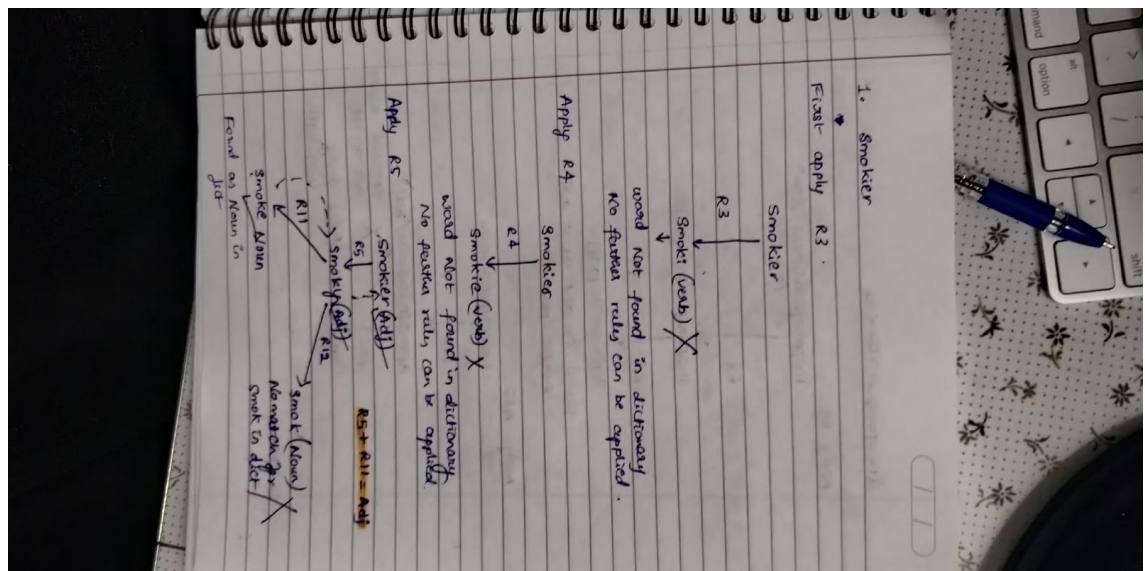 1. Smokier
First apply R3.
Smokier
R3
Smoki (verb) X
word Not found in dictionary
No further rules can be applied.
Apply R4
Smokier
R4
Smokie (verb) X
word Not found in dictionary
No further rules can be applied.
Apply R5
Smokier (Adj)
R5
R5 + R11 = Adj
Smoky (Adj)
R11
R12
Smok (Noun) X
No match for
smok in dict
Smoke Noun
Found as Noun in
dict
mand
alt
option
shift